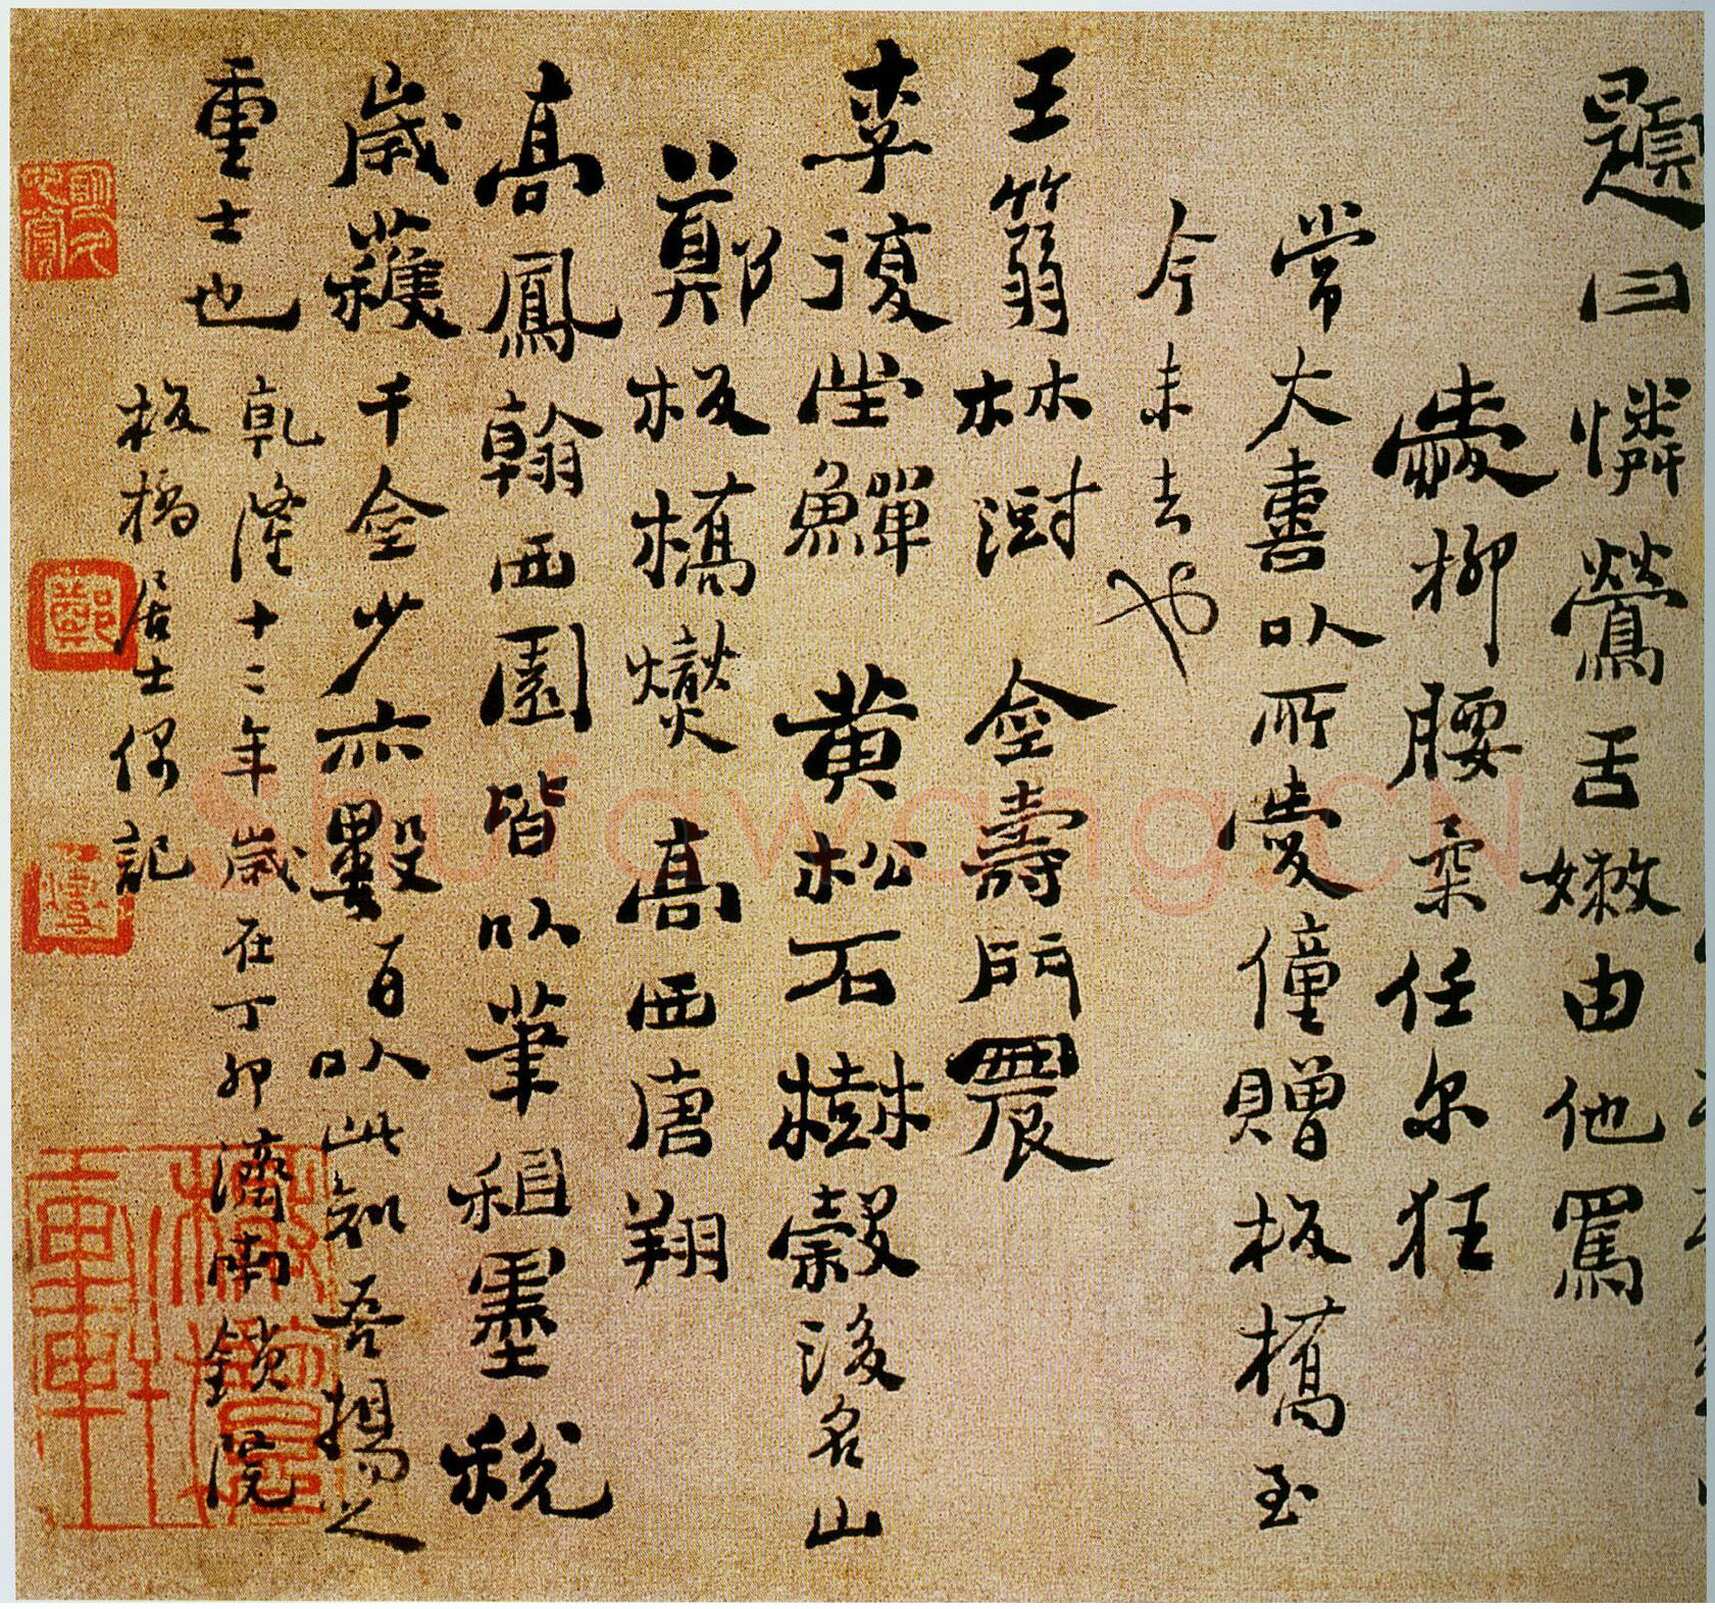 題曰憐鶯舌嫩由他罵
愛柳腰柔任尔狂
常大喜以所愛僮贈板橋至
今未去也
王篛林澍 金壽門農
李復堂鱓 黃松石樹穀後名山
鄭板橋燮 高西唐翔
高鳳翰西園皆以筆租墨稅
歲穫千金少亦數百以此知吾揚之
重士也 乾隆十二年歲在丁卯濟南鎖院
板橋居士偶記
鄭
shufawang.CN